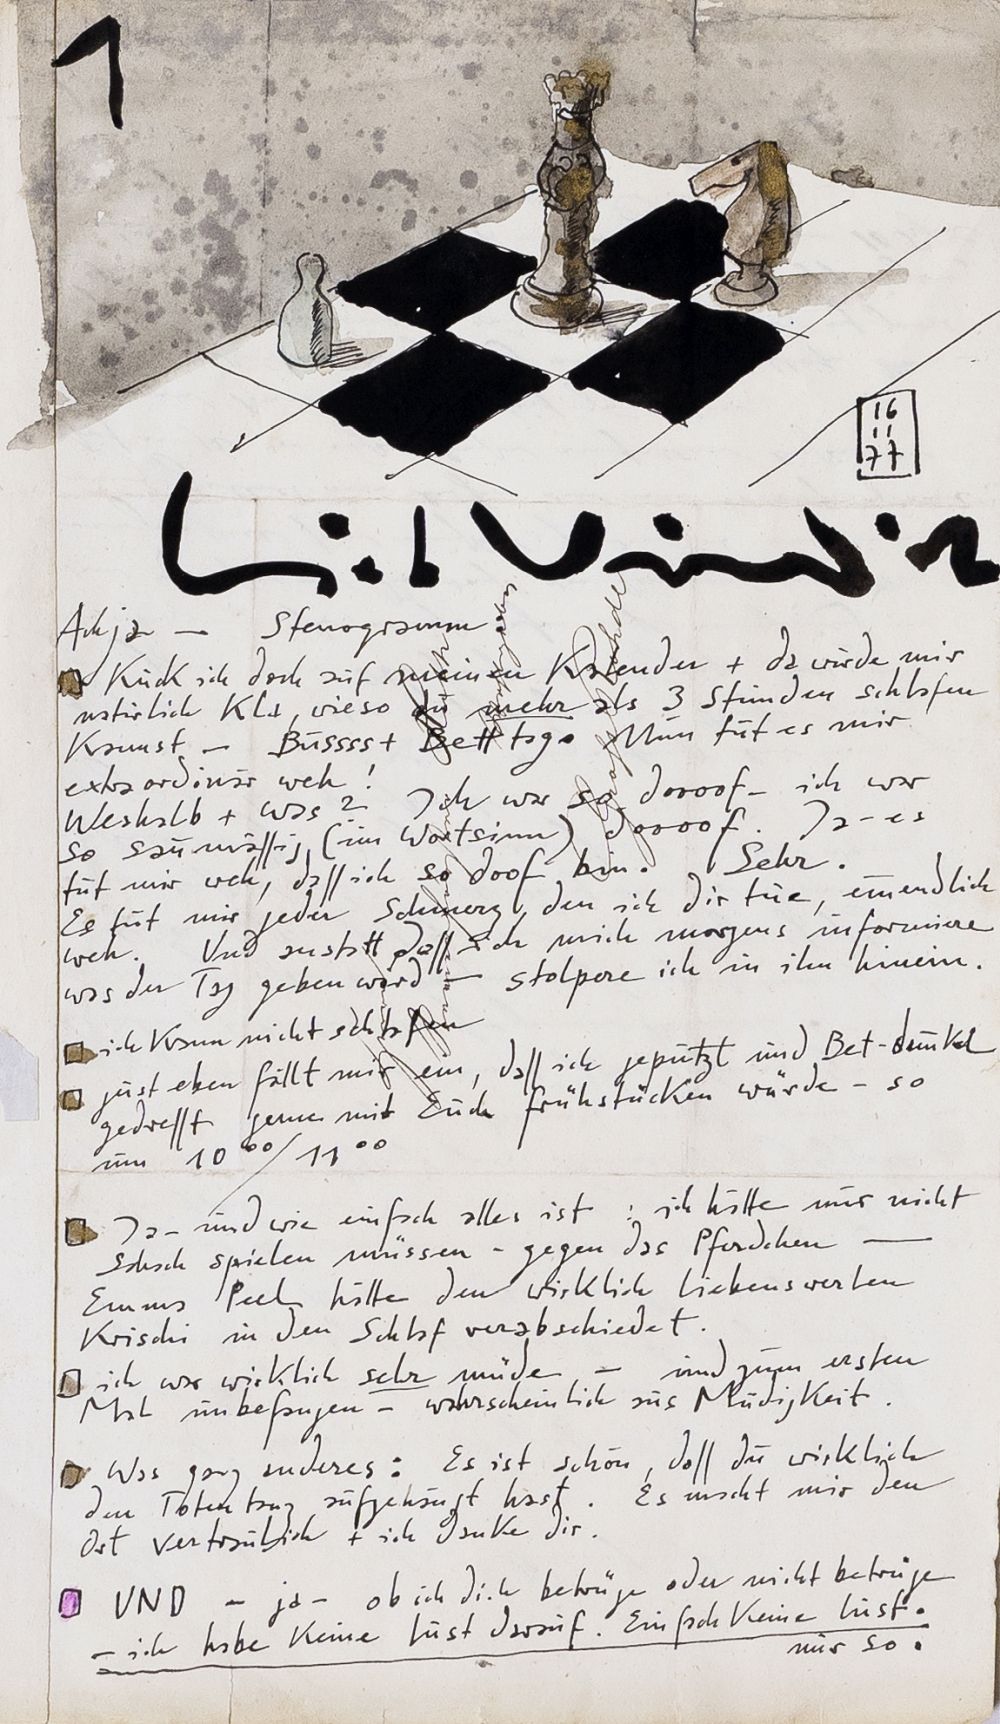 1
16
11
77
Achja — Stenogramm:
Kuck ich doch auf meinen Kalender + da wurde mir
natürlich klar, wieso du mehr als 3 Stunden schlafen
kannst — Bussss+ Betttag. Nun tut es mir
extraordinär weh!
Weshalb + was? Ich war so dooof – ich war
so saumässig (im Wortsinn) doooof. Ja – es
tut mir weh, dass ich so doof bin. Sehr.
Es tut mir jeder Schmerz, den ich dir tue, unendlich
weh. Und anstatt dass ich mich morgens informiere
was der Tag geben wird — stolpere ich in ihn hinein.
ich kann nicht schlafen
just eben fällt mir ein, dass ich geputzt und Bet-dunkel
gedresst gerne mit Euch frühstücken würde – so
um 10 00 / 11 00
Ja – und wie einfach alles ist : ich hätte nur nicht
Schach spielen müssen – gegen das Pferdchen —
Emma Peel hätte den wirklich liebenswerten
Krischi in den Schlaf verabschiedet.
ich war wirklich sehr müde — und zum ersten
Mal unbefangen – wahrscheinlich aus Müdigkeit.
Was ganz anderes: Es ist schön, dass du wirklich
den Totentanz aufgehängt hast. Es macht mir den
Ort vertraulich + ich danke dir.
UND – ja – ob ich dich betrüge oder nicht betrüge
– ich habe keine Lust darauf. Einfach keine Lust.
nur so.